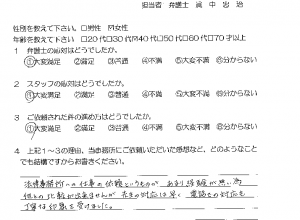 担当者 弁護士 眞中忠治
性別を教えて下さい。□男性 ☑女性
年齢を教えて下さい。□20代□30代☑40代□50代□60代□70才以上
1 弁護士の応対はどうでしたか。
①大変満足 ②満足 ③普通 ④不満 ⑤大変不満 ⑥分からない
2 スタッフの応対はどうでしたか。
①大変満足 ②満足 ③普通 ④不満 ⑤大変不満 ⑥分からない
3 ご依頼された件の進め方はどうでしたか。
①大変満足 ②満足 ③普通 ④不満 ⑤大変不満 ⑥分からない
4 上記1~3の理由、当事務所にご依頼いただいた感想など、どのようなこと
でも結構ですからお書きください。
法律事務所への仕事の依頼というものが あまり経験が無い為
他との比較が出来ませんが
丁寧な印象を受けました。